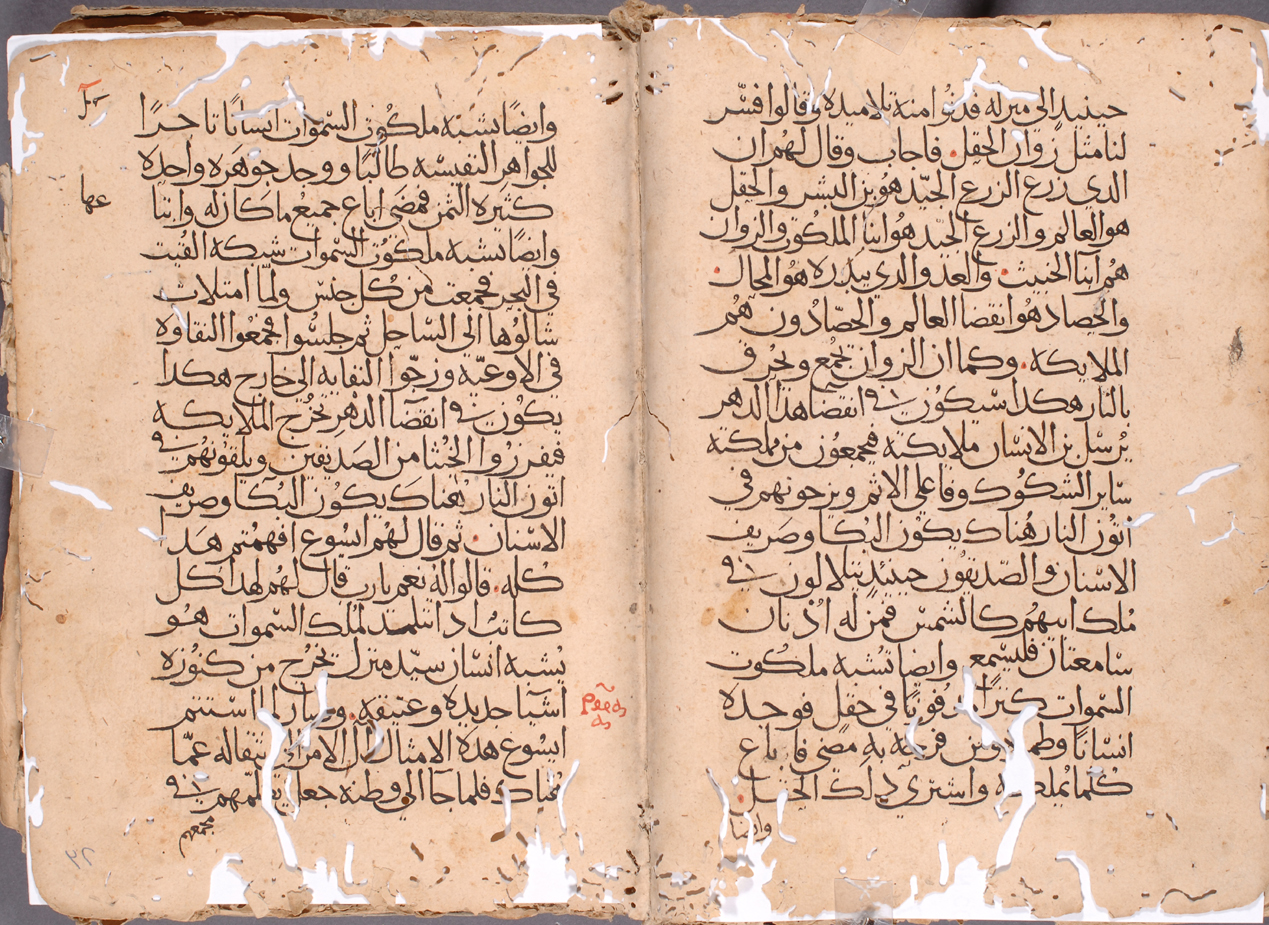 حينيد الى منزله فدنوا منه تلاميده وقالوا فسّر
لنا مثل زوان الحقل. فاجاب وقال لهم ان
الدي زرع الزرع الجيّد هو بن البشر والحقل
هو العالم والزرع الجيّد هو ابنا الملكوت والزوان
هم ابنا الخبيث. والعدو الدي يبدره هو المحال.
والحصاد هو انقضا العالم والحصّادون هم
الملايكه. وكما ان الزوان تجمع وتحرق
بالنار هكدا سيكون في انقضا هدا الدهر
يرسل بن الانسان ملايكته فيجمعون من مملكته
ساير الشكوك وفاعلي الاثم ويزجونهم في
اتون النار هناك يكون البكا وصريف
الاسنان والصديقون حينيد يتلالون في
ملك ابيهم كالشمس فمن له ادنان
سامعتان فليسمع وايضا تشبه ملكوت
السموات كنزا مدفونا في حقل فوجده
انسانا فرحته به مضى فاباع
كلما يملكه واشترى دلك الحقل.
وايضا
وايضًا يشبه ملكوت السموات انسانًا تاجرًا
للجواهر النفيسه طالبًا ووجد جوهره واحده
كثيره الثمن فمضى اباع جميع ما كان له وابتا
عها
وايضًا يشبه ملكوت السموات شبكه القيت
في البحر فجمعت من كل جنس ولمّا امتلات
شالوها الى الساحل ثم جلسوا فجمعوا النقاوه
في الاوعيّه وزجّوا النفايه الى خارج هكدا
يكون في انقضا الدهر تخرج الملايكه
فيفرزوا الخبثا من الصديقين ويلقونهم في
اتون النار هناك يكون البكا وصريف
الاسنان. ثم قال لهم ايسوع افهمتم هدا
كله. قالوا له نعم يارب قال لهم لهدا كل
كاتب ادا تتلمد لملك السموات هو
يشبه انسان سيّد منزل تخرج من كنوزه
اشيا جديده وعتيقه. وصار لما استتم
ايسوع هده الامثال ال الامر انتقاله عمّا
هناك فلما جا الى وطنه جعل يعلّمهم في
مجمعهم